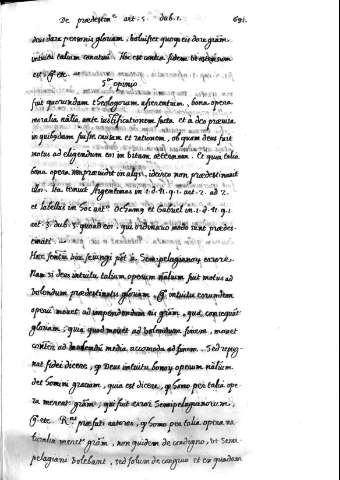 De prædestin.ne art. 5. dub. 1. 691.
deus dare personis gloriam, voluisset quoque eis dare grãm,
intuitu talium conatuũ. Hoc est contra fidem ut ostensum
est. Ergo etc.
3.a opinio
fuit quorundam theologorum asserentium, bona opera
moralia nãlia, ante iustificationem facta et a deo prævisa
in quibusdam fuisse causam et rationem, ob quam deus fuit
motus ad eligendum eos in vitam æternam. Et quia talia
bona opera non prævidit in aliis, idcirco non prædestinavit
illos. Ita tenuit Argentinas in 1. d. 41. q. 1. art. 2. ad 2.
et labellis in hoc art. Ocham 9 et Gabriel in 1. d. 41. q. 1.
art. 3. dub. 3. quoad eos, qui ordinario modo sunt prædes-
tinati.
Hæc sentẽn vix seiungi põt a Semipelagianorũ errore.
Nam si deus intuitu talium operum nãlium fuit motus ad
volendum prædestinatis gloriam, ergo intuitu eorumdem
operũ movet ad impendendum eis grãm, qua consequãt
gloriam; quia quod movet ad volendum finem, movet
ad media accomoda ad finem. Sed repug-
nat fidei dicere, q Deus intuitu bonorũ operum nãlium
det homini gratiam, quia est dicere, q homo per talia ope-
ra meretr grãm, qui fuit error Semipelagianorum,
ergo etc. præfati autores, q homo per talia opera na-
turalia meretr grãm, non quidem de condigno, ut Semi-
pelagiani volebant, sed solum de congruo et ex quadam